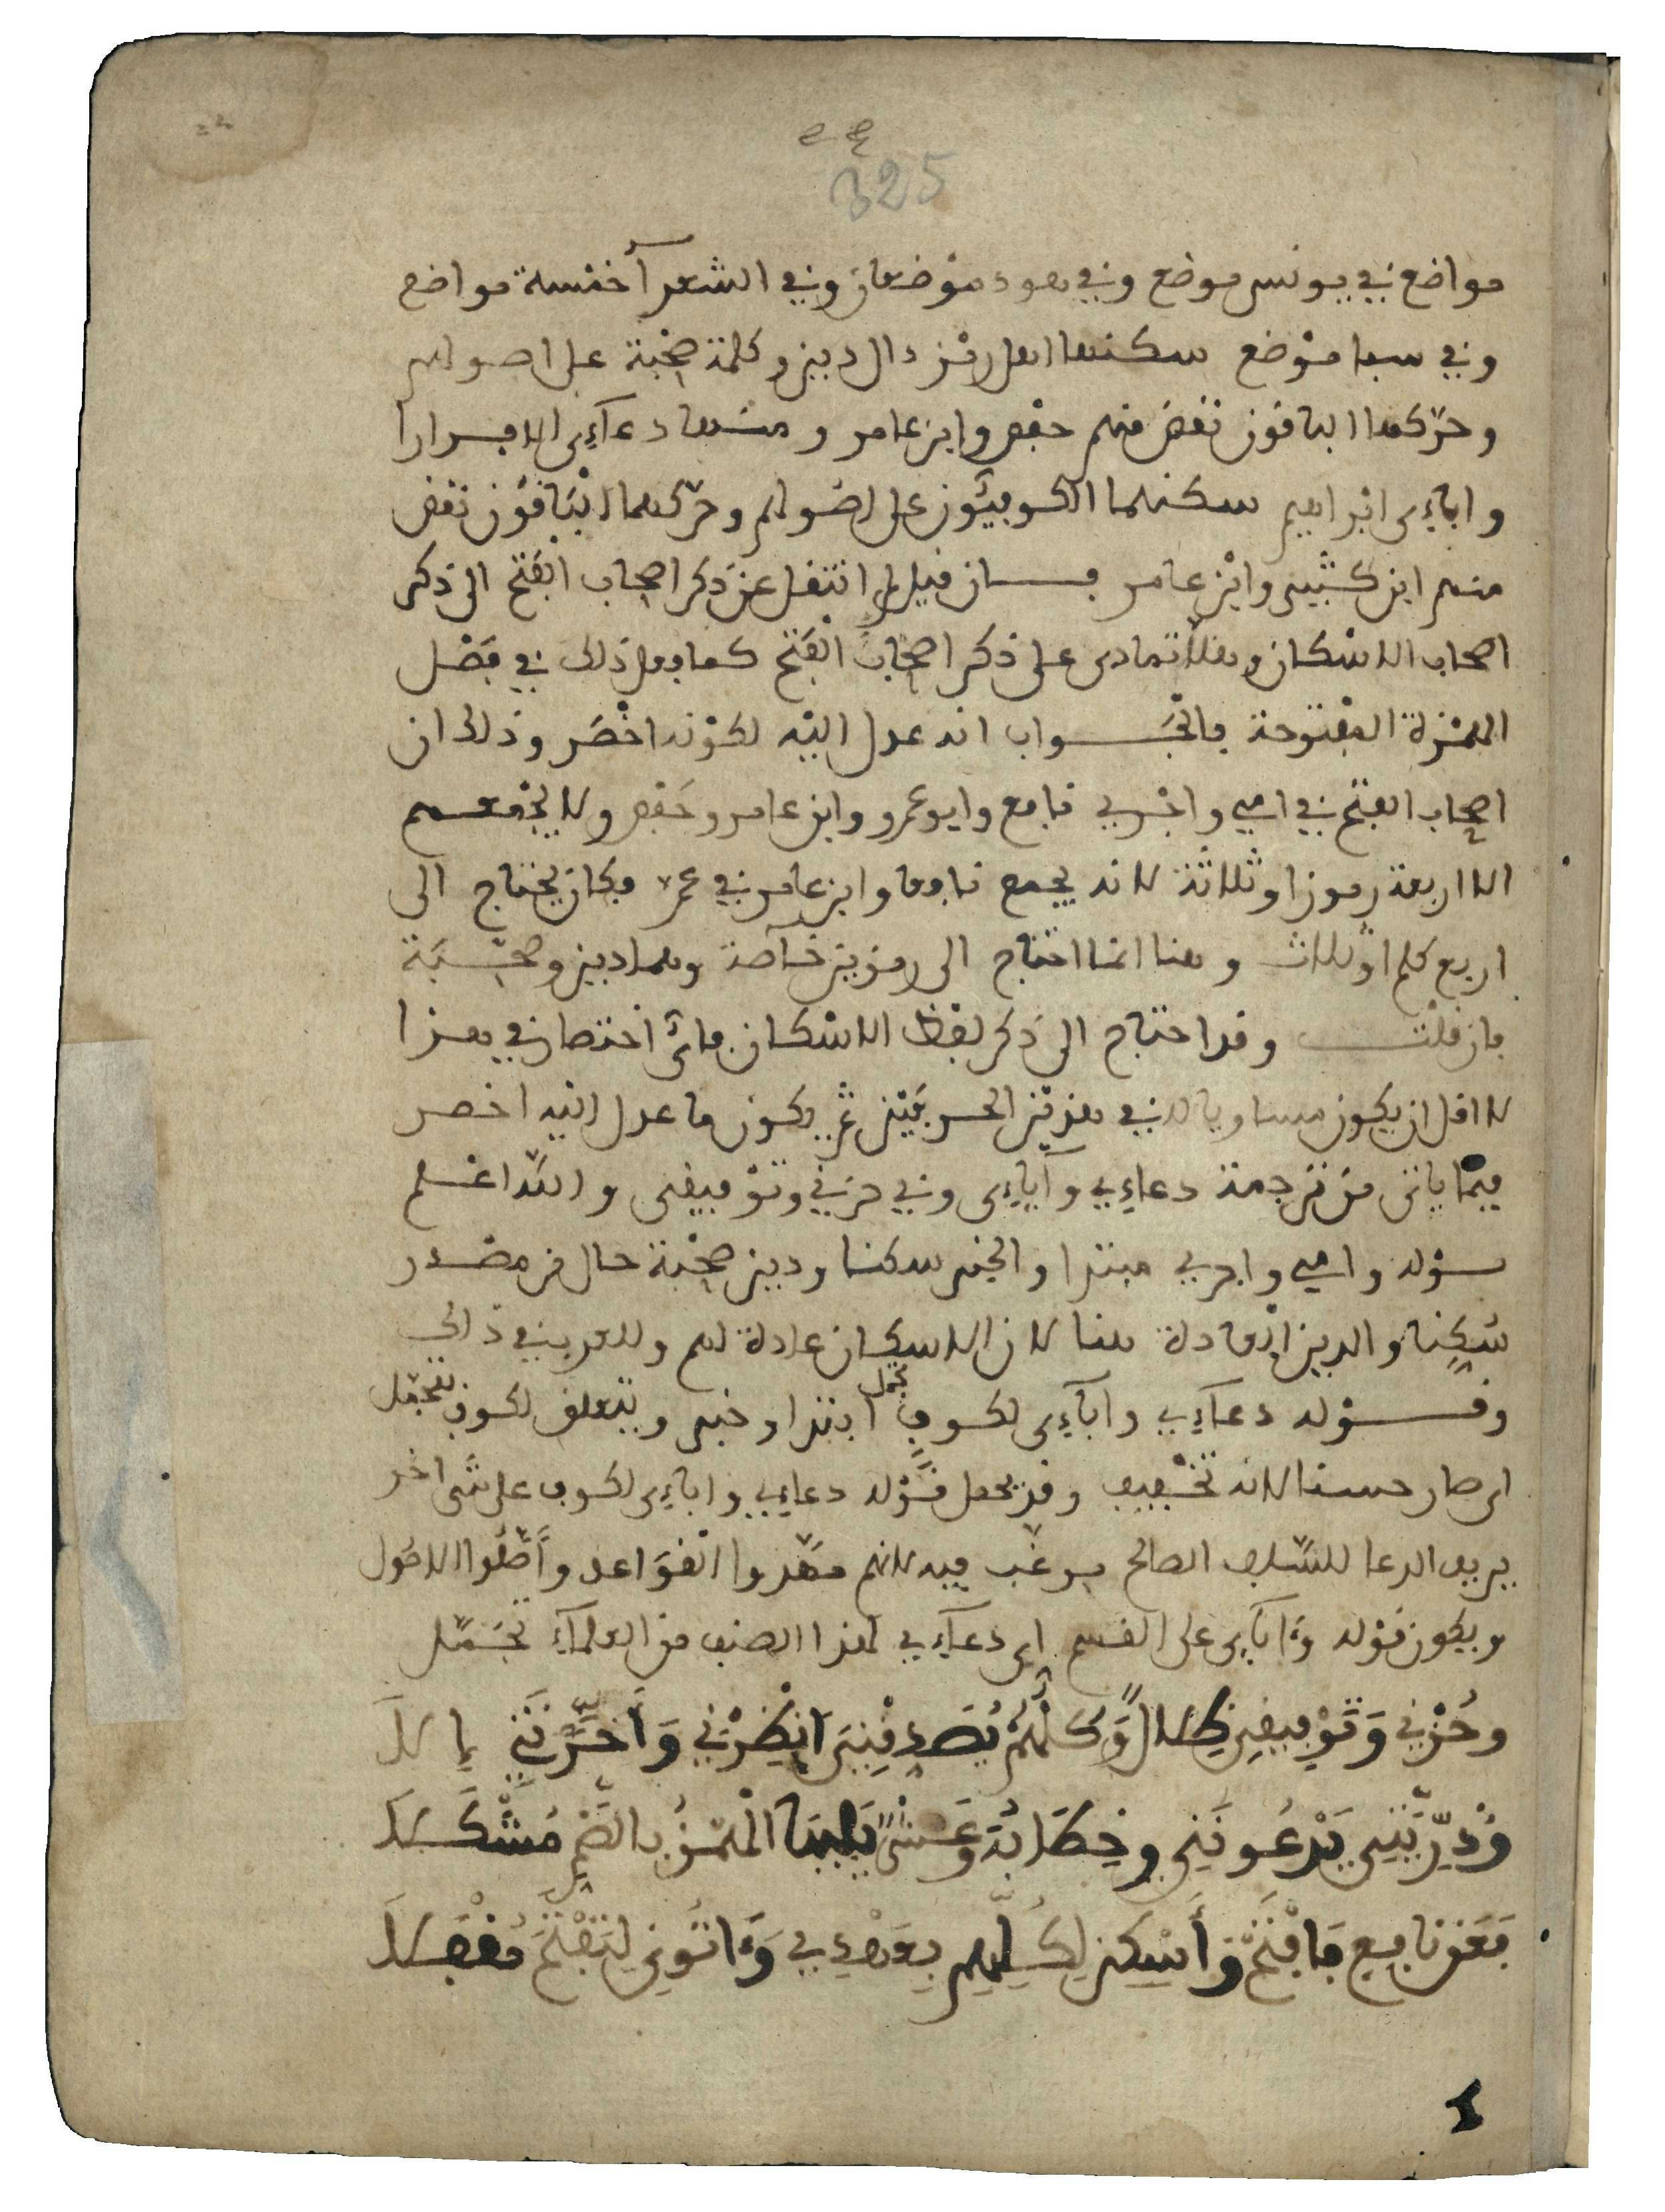 325
مواضع في يونس موضع وفي هود موضعان وفي الشعرآ خمسة مواضع
وفي سبا موضع سكنها اهل رمز دال دين وكلمة صحبة على اصولهم
وحركها الباقون نغض منهم حفص وابن عامر ومنها دعآءي الا فرارا
واباءي ابراهيم سكنهما الكوفيّون على اصولهم وحركهما الباقون نغض
منهم ابن كثير وابن عامر فان قيل لم انتقل عن ذكر اصحاب الفتح الى ذكر
اصحاب الاسكان وهلا تمادى على ذكر اصحاب الفتح كما فعل ذلك في فصل
الهمزة المفتوحة فالجواب انه عدل اليه لكونه اخصر وذلك ان
اصحاب الفتح في امي واجري نافع وابو عمرو وابن عامر وحفص ولا يجمعهم
الا اربعة رموز او ثلاثة لانه يجمع نافعا وابن عامر في عمّ فكان يحتاج الى
اربع كلم او ثلاث وهنا انما احتاج الى رمزين خآصة وهما دين وصحبة
فان قلت وقد احتاج الى ذكر لفظ الاسكان فائ اختصار في هذا
لا اقل ان يكون مساويا له في هذين الحرفين ثم يكون ما عدل اليه اخصر
فيما ياتى من ترجمة دعاءي وآباءي وفي حزني وتوفيقى والله اعلم
قوله وامي واجري مبتدا والخبر سكنا ودين صحبة حال من مصدر
سُكِنا والدين العادة هنا لان الاسكان عادة لهم وللعرب في ذالك
وقوله دعآءي وآبآءي لكوف تجمل ابتدا وخبر ويتعلق لكوف بتجمل
اى صار حسنا لانه تخفيف وقد يحمل قوله دعاءي واباءي لكوف على شى اخر
يريد الدعا للسلف الصالح يرغب فيه لانهم مهّدوا القواعد وأصّلوا الاصول
ويكون قوله وءابآءي على القسم اى دعآءي لهذا الصنف من العلمآء تجمّل
وحُزْنِي وَتَوْفِيقِي ظِلالٌ وَكلُّهُمْ يُصَدِقْنِيَ انْظِرْنِي وَأَخَّرْتَنِي إِلَى لَا
وَذُرِّيَّتِي يَدْعُونَنِي وخِطَابُهُ وَعَشْرٌ يَلِيهَا الْهَمْزُ بِالضَّمِ مُشْكَلَا
فَعَن نافِعٍ فَافْتَحْ وَأَسْكِن لِكُلِّهِم بِعَهْدِي وَءَاتُونِي لِتَفْتَحَ مُقْفَلَا